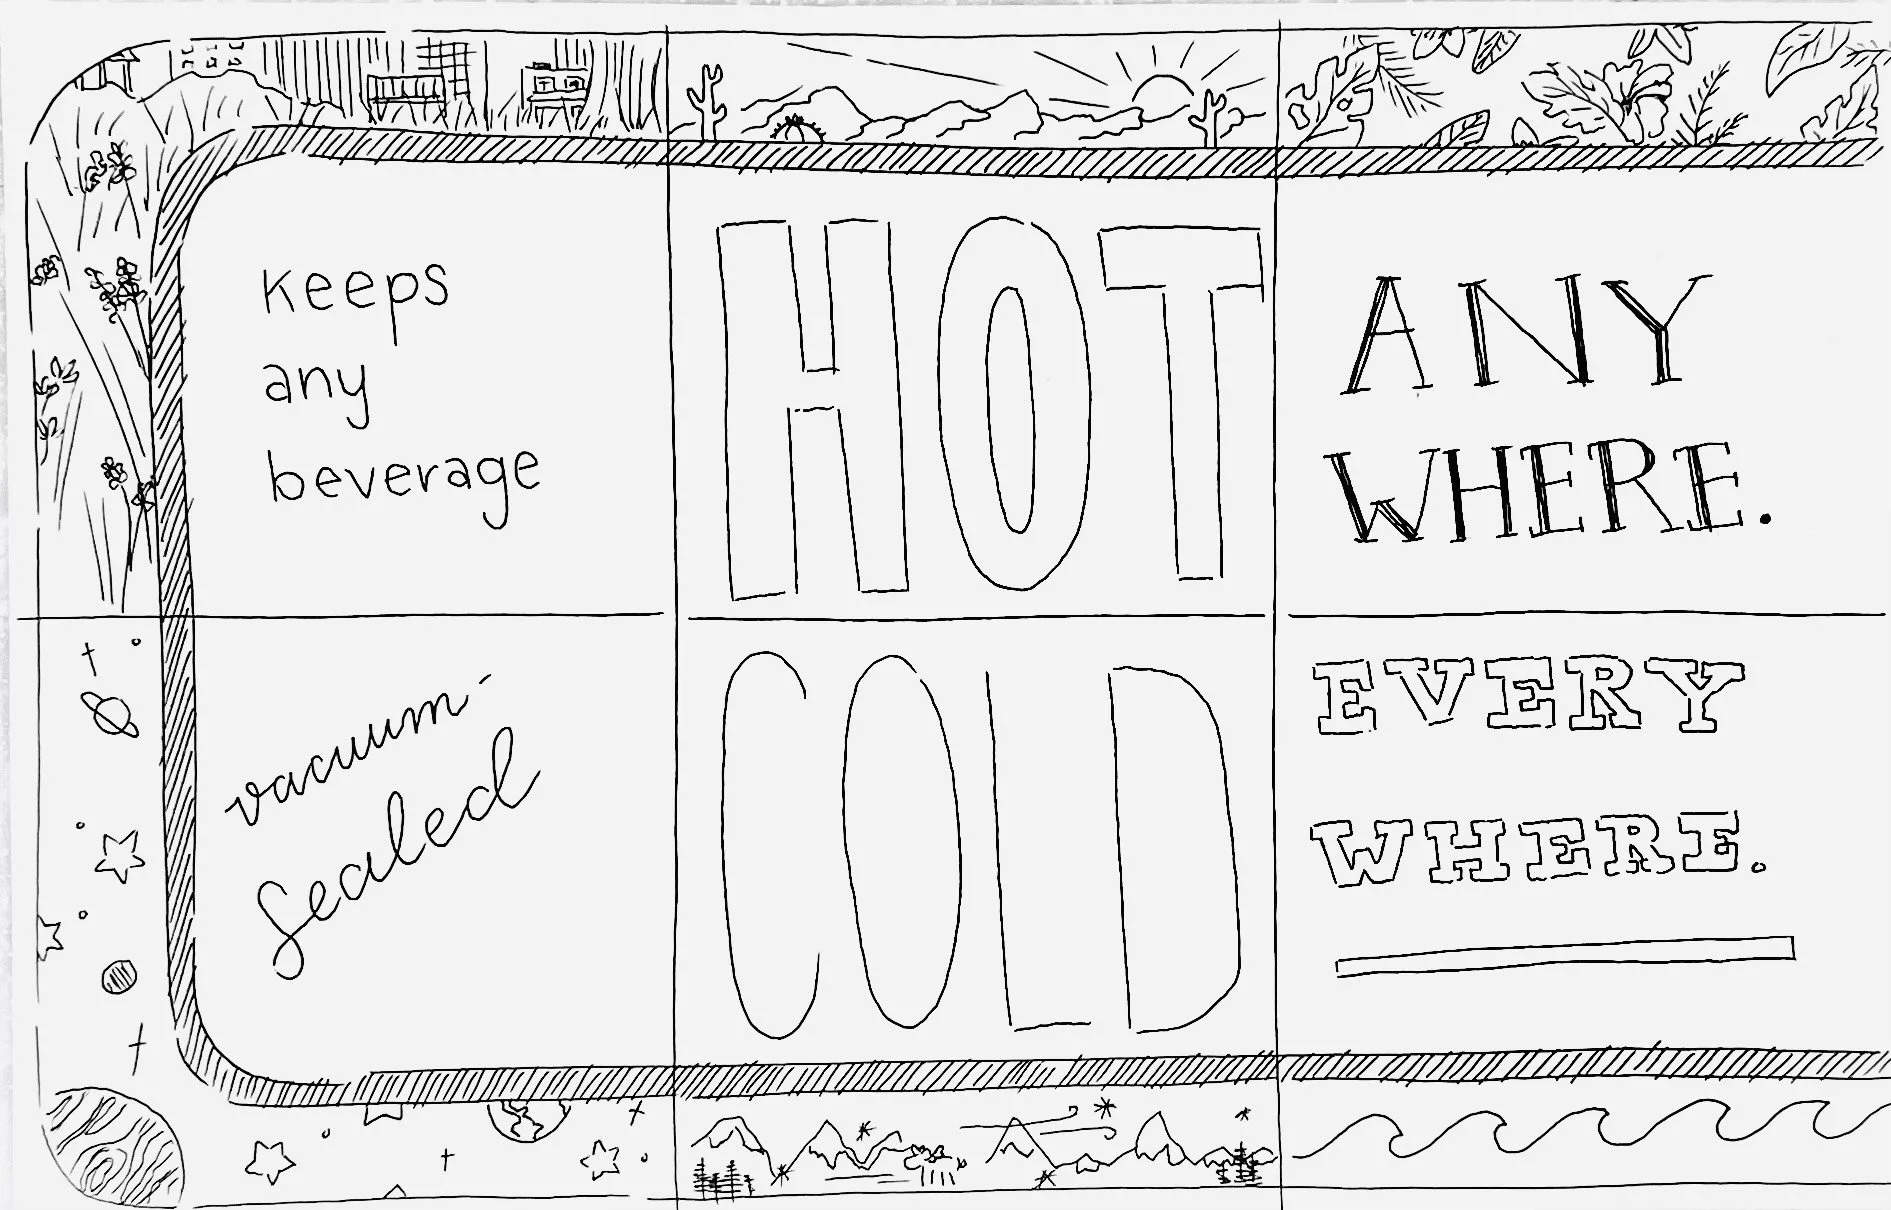 keeps
any
beverage
HOT
ANY
WHERE.
vacuum-
sealed
COLD
EVERY
WHERE.